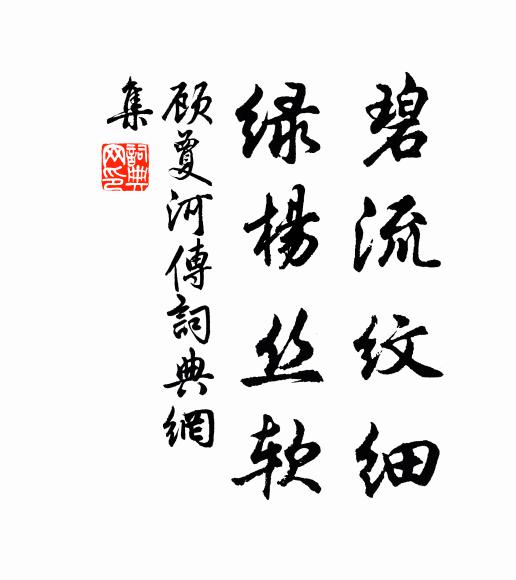 碧流纹细
绿杨丝软
顾夐河傳詞典網
集
詞典
网印